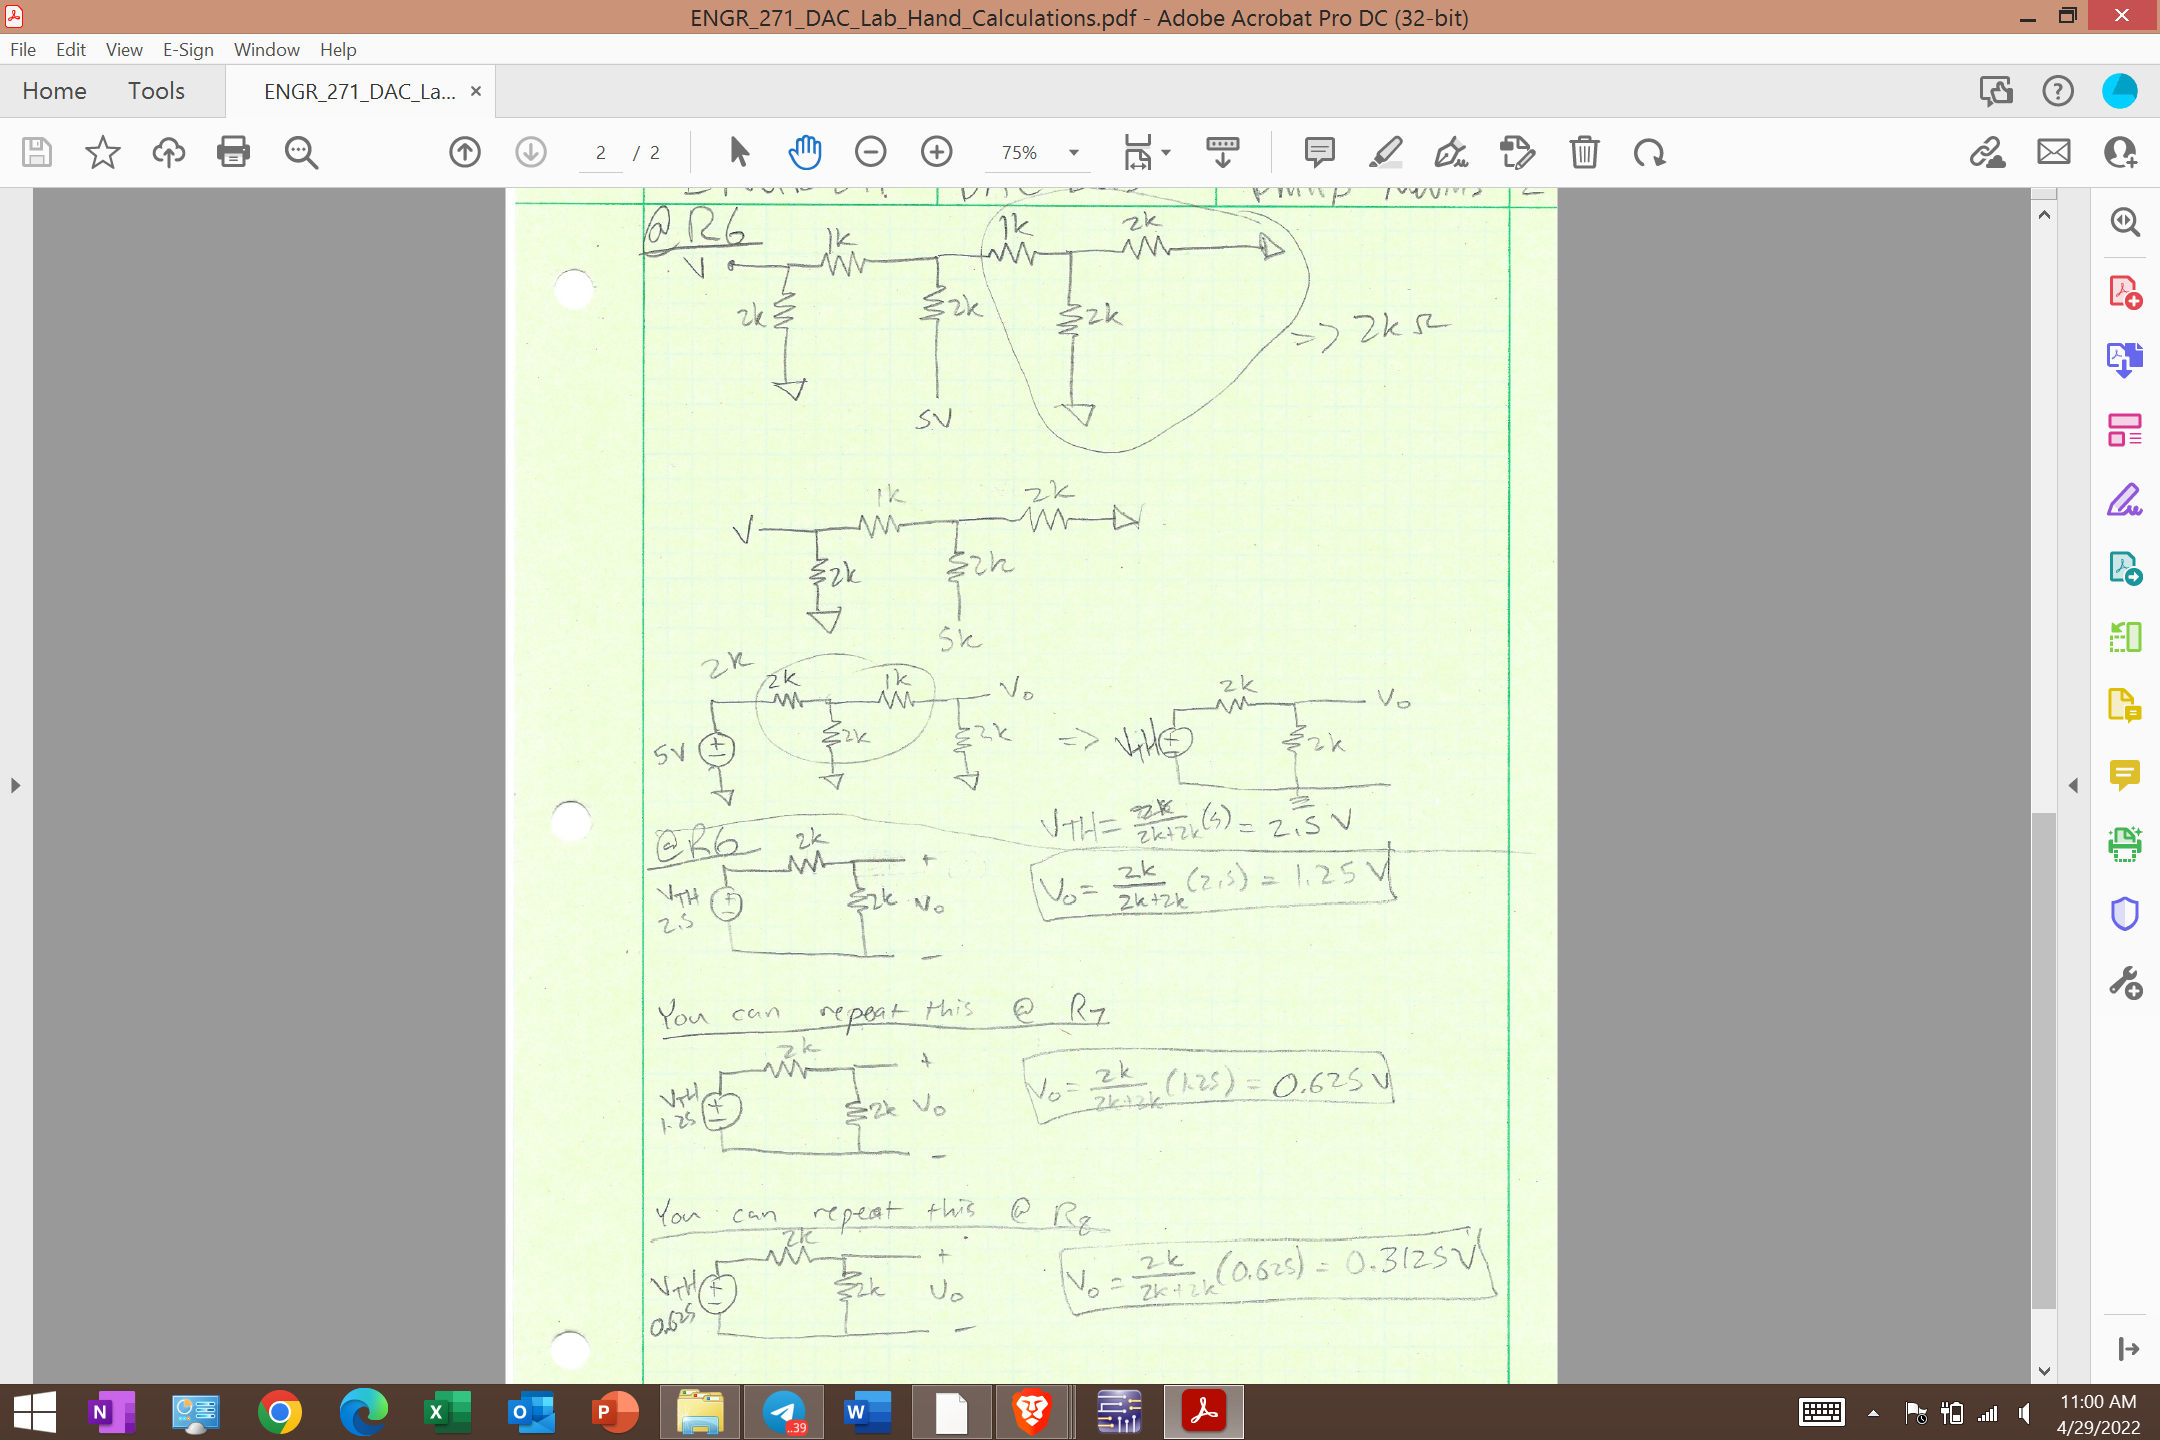 ENGR_271_DAC_Lab_Hand_Calculations.pdf - Adobe Acrobat Pro DC (32-bit)
File Edit View E-Sign Window Help
Home Tools ENGR_271_DAC_La... ×
2 / 2 75%
@ R6
V 1k 1k 2k
2k 2k 2k => 2kΩ
5V
1k 2k
V
2k 2k
5k
2k
2k 1k Vo 2k Vo
5V 2k 2k => VTH 2k
VTH = 2k/2k+2k (5) = 2.5 V
@R6 2k +
VTH 2.5 2k Vo
-
Vo = 2k/2k+2k (2.5) = 1.25 V
You can repeat this @ R7
2k +
VTH 1.25 2k Vo
-
Vo = 2k/2k+2k (1.25) = 0.625 V
You can repeat this @ R8
2k +
VTH 0.625 2k Vo
-
Vo = 2k/2k+2k (0.625) = 0.3125 V
..39
11:00 AM
4/29/2022